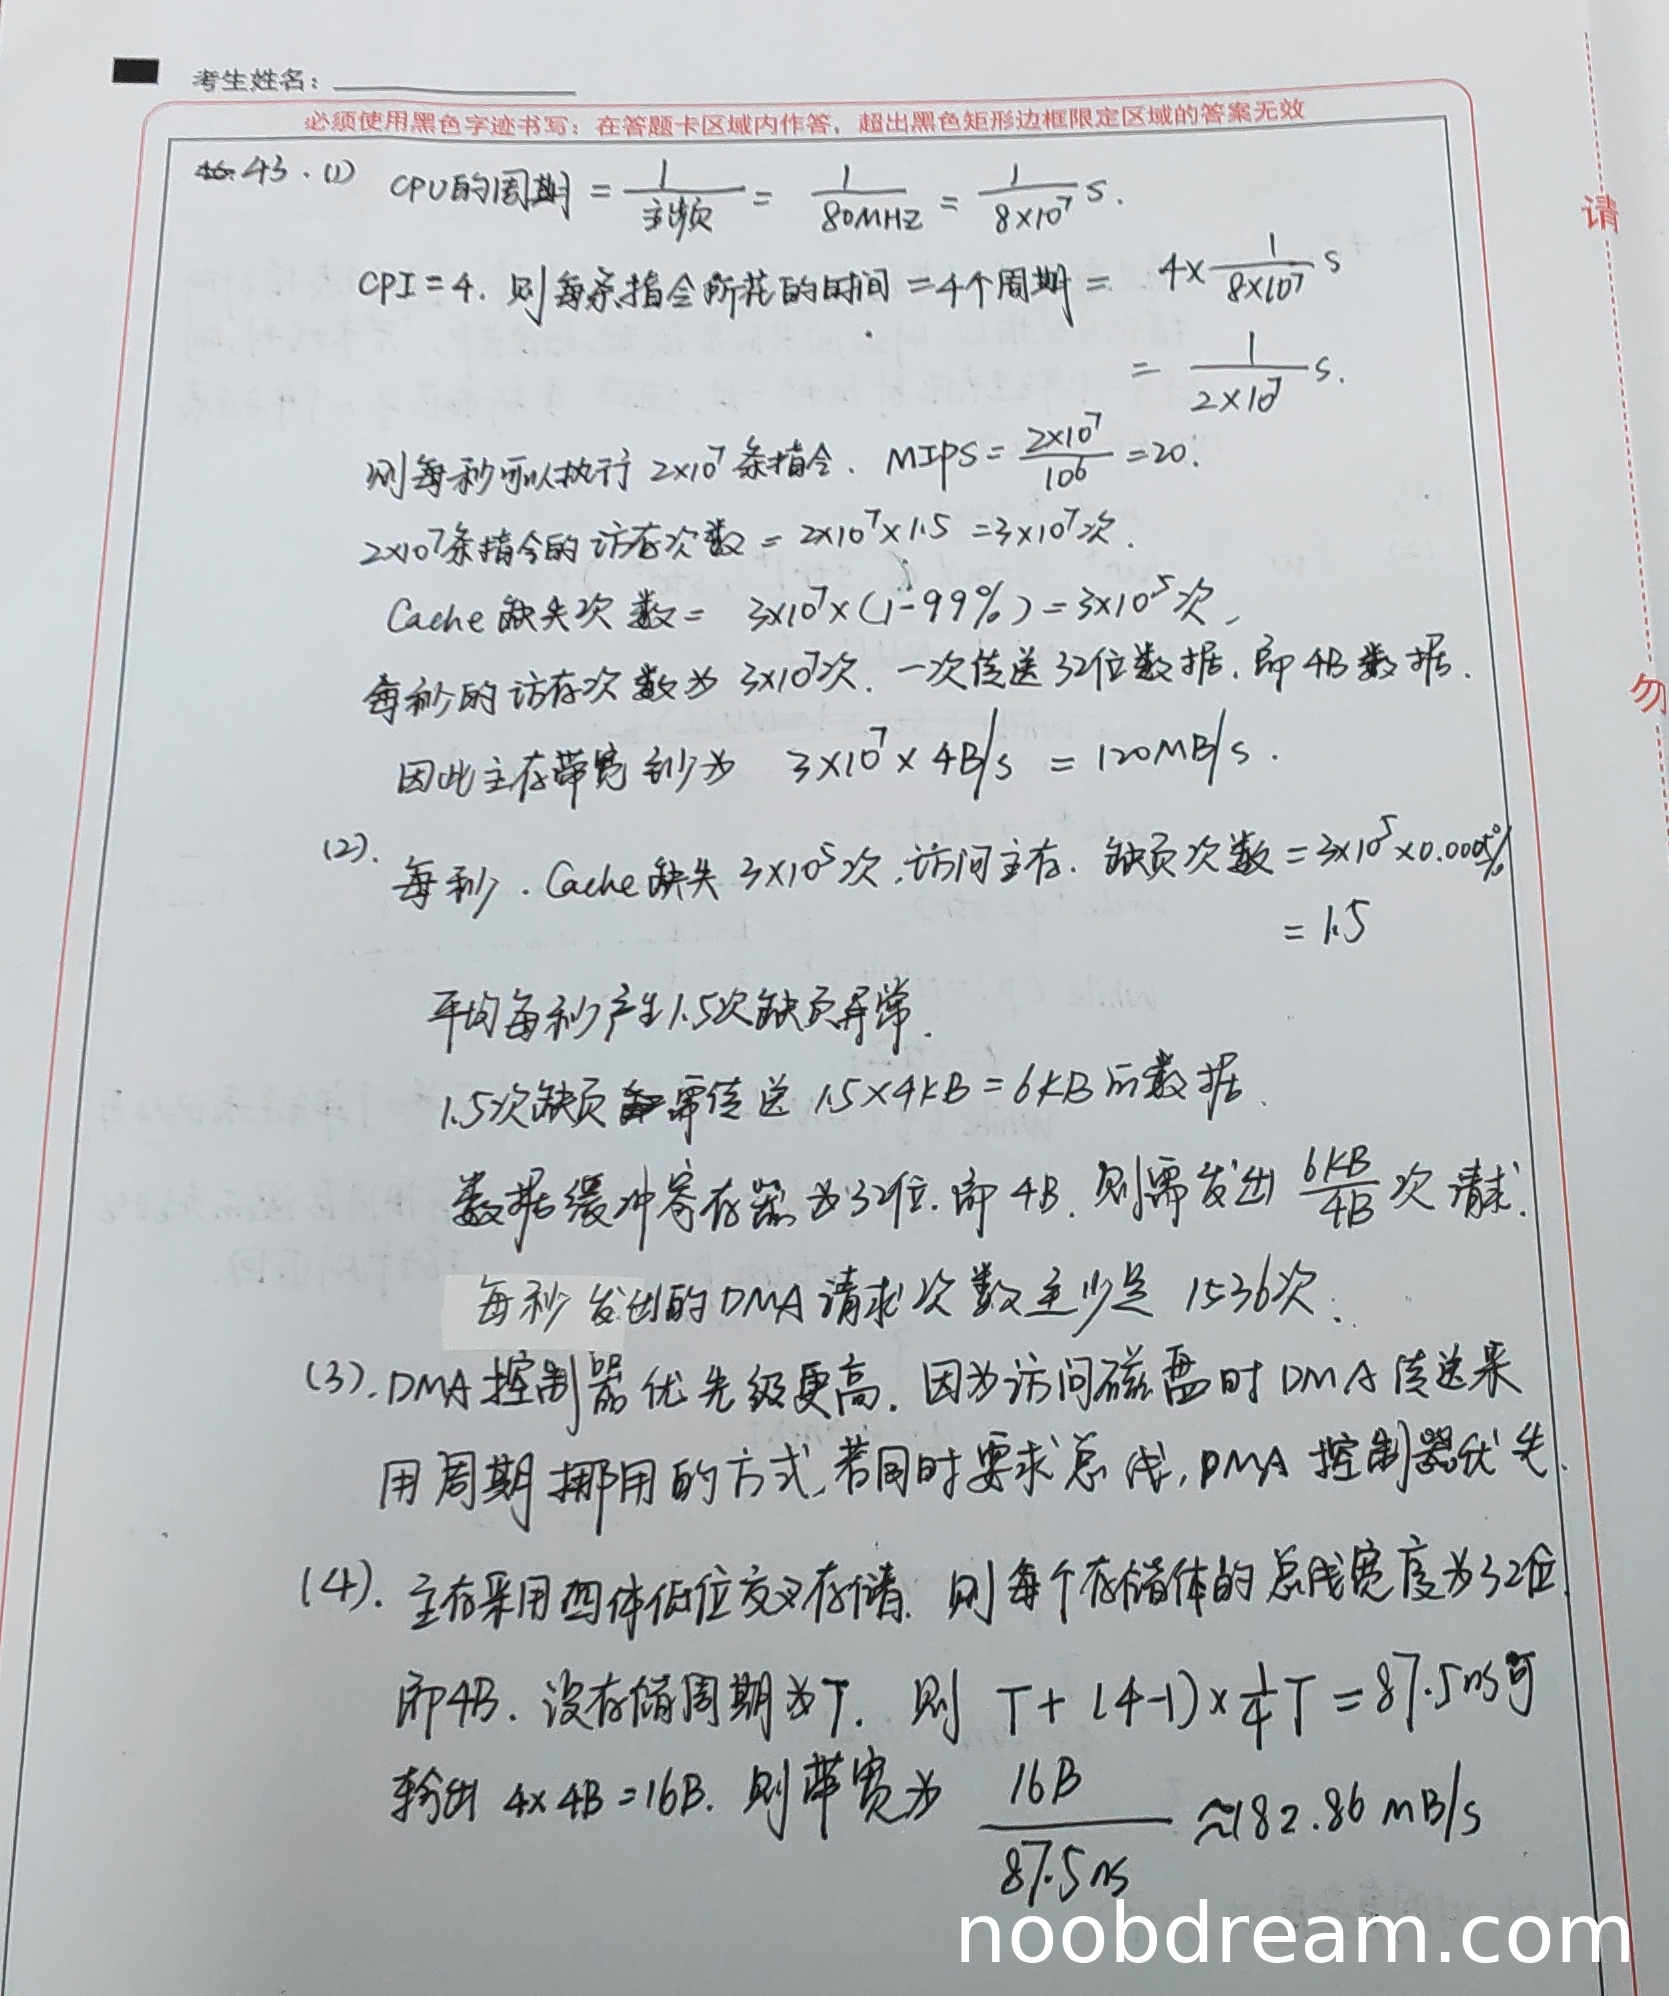 考生姓名：
必须使用黑色字迹书写：在答题卡区域内作答，超出黑色矩形边框限定区域的答案无效
43.(1) CPU的周期 = 1/主频 = 1/80MHZ = 1/8×10⁷ s.
CPI = 4. 则每条指令所花的时间 = 4个周期 = 4× 1/8×10⁷ s
= 1/2×10⁷ s.
则每秒可以执行 2×10⁷ 条指令. MIPS = 2×10⁷/10⁶ = 20.
2×10⁷条指令的访存次数 = 2×10⁷×1.5 = 3×10⁷次.
Cache 缺失次数 = 3×10⁷×(1-99%) = 3×10⁵次,
每秒的访存次数为 3×10⁷次. 一次传送32位数据. 即4B数据.
因此主存带宽至少为 3×10⁷×4B/s = 120MB/s.
(2). 每秒. Cache缺失 3×10⁵次, 访问主存. 缺页次数 = 3×10⁵×0.0005%
= 1.5
平均每秒产生1.5次缺页异常.
1.5次缺页需传送 1.5×4KB = 6KB的数据.
数据缓冲寄存器为32位. 即4B. 则需发出 6KB/4B 次请求.
每秒发出的DMA请求次数至少是 1536次.
(3). DMA控制器优先级更高. 因为访问磁盘时DMA传送采
用周期挪用的方式, 若同时要求总线, DMA控制器优先.
(4). 主存采用四体低位交叉存储. 则每个存储体的总线宽度为32位.
即4B. 设存储周期为T. 则 T+(4-1)×1/4T = 87.5ns可
输出 4×4B=16B. 则带宽为 16B/87.5ns ≈182.86MB/s
请
勿
noobdream.com